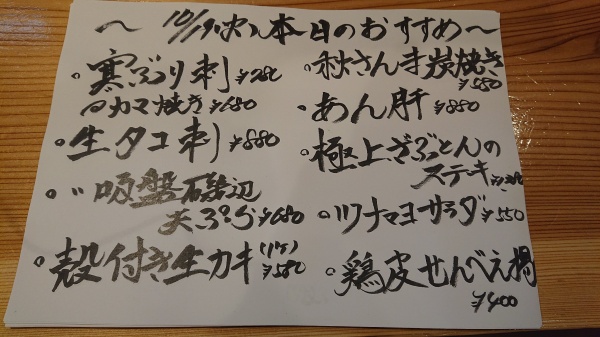 〜 10/19(水) 本日のおすすめ〜
。寒ぶり刺 ¥980
〃カマ焼き ¥680
。生タコ刺 ¥880
。〃吸盤磯辺
天ぷら ¥680
。殻付き生カキ(1ヶ) ¥580
。秋さんま炭焼き
¥580
。あん肝 ¥850
。極上ざぶとんの
ステキ
。ツナマヨサラダ ¥550
。鶏皮せんべえ揚
¥400